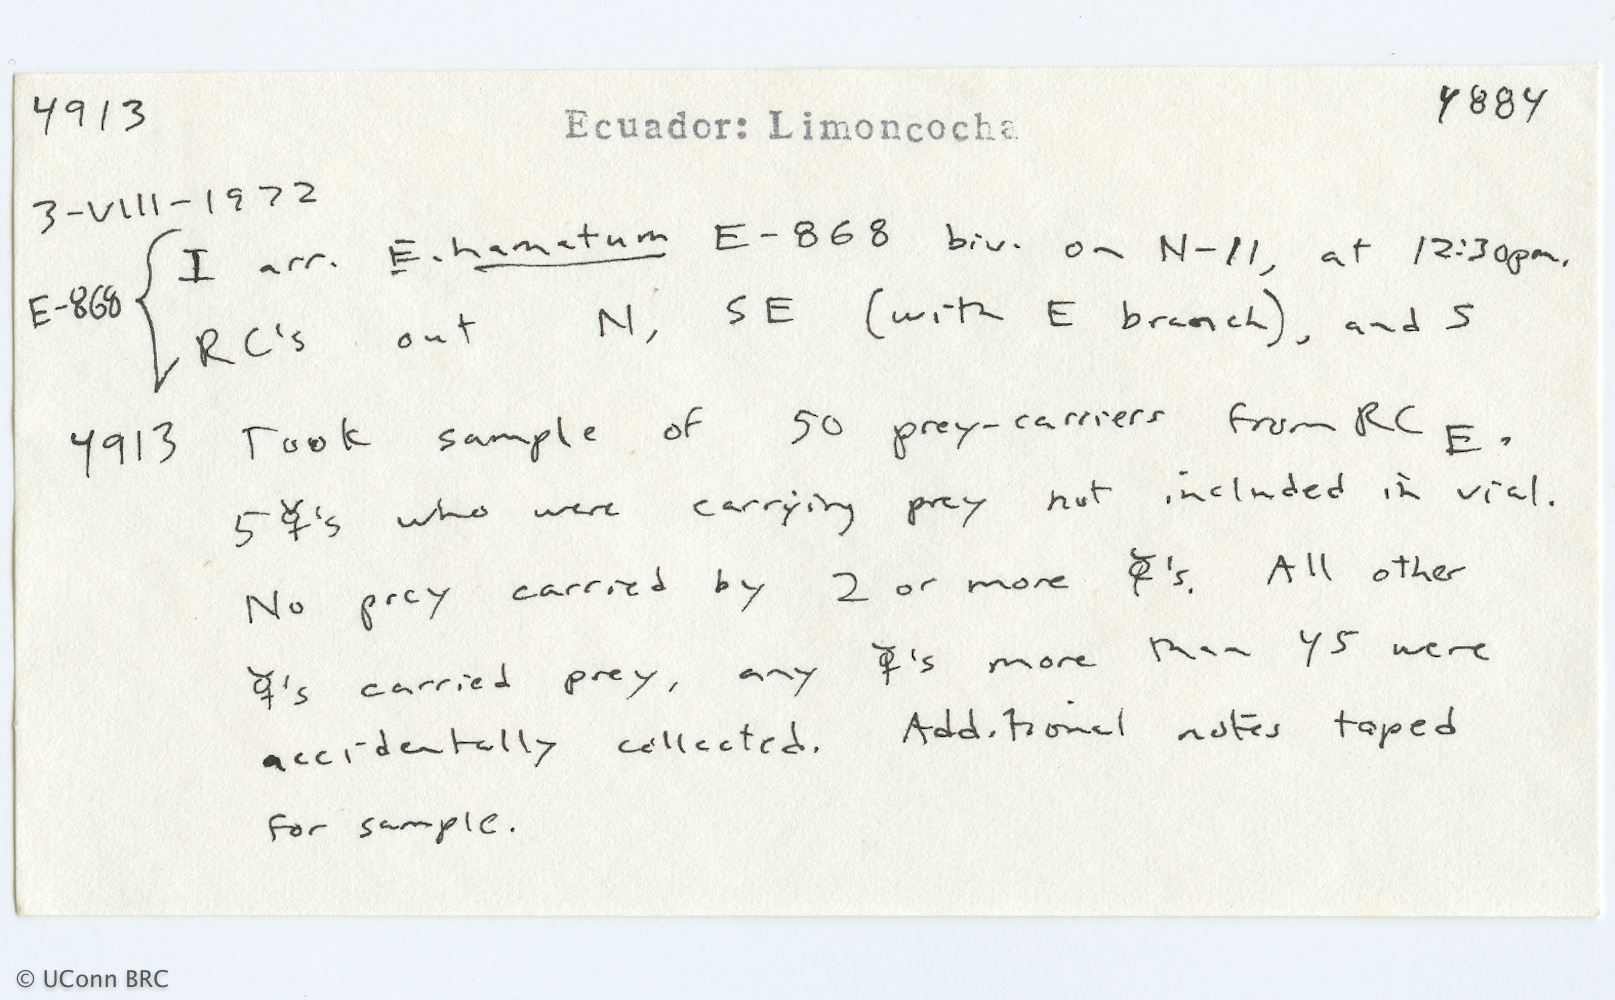 4913
Ecuador: Limoncocha
4884
3-VIII-1972
E-868
I arr. E. hamatum E-868 biv. on N-11, at 12:30pm.
RC's out N, SE (with E branch), and S
4913 Took sample of 50 prey-carriers from RC E.
5 ☿'s who were carrying prey not included in vial.
No prey carried by 2 or more ☿'s. All other
☿'s carried prey, any ☿'s more than 45 were
accidentally collected. Additional notes taped
for sample.
© UConn BRC